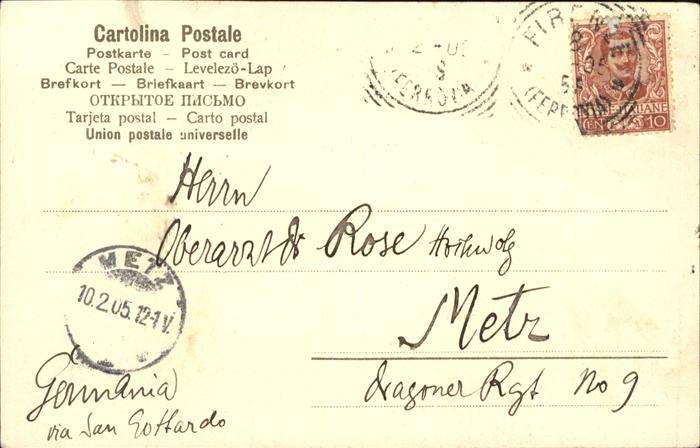 Cartolina Postale
Postkarte – Post card
Carte Postale – Levelező-Lap
Brefkort — Briefkaart — Brevkort
ОТКРЫТОЕ ПИСЬМО
Tarjeta postal – Carto postal
Union postale universelle
2 - 05
8
(FERROVIA)
FIRENZE
8
05
5 S
(FERROVIA)
10
Herrn
Oberarzt Dr Rose Hochwolg
Metz
Dragoner Rgt No 9
METZ
10.2.05.12-1V.
Germania
via San Gottardo